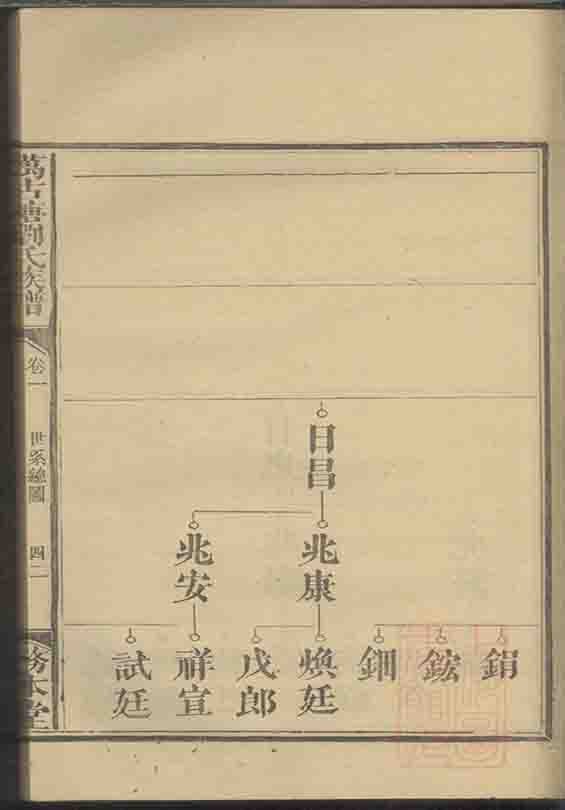 日昌
兆康
兆安
鋗
鋐
鈿
煥廷
戊郎
祥宣
試廷
萬古塘劉氏族譜
卷一
世系總圖
四二
務本堂